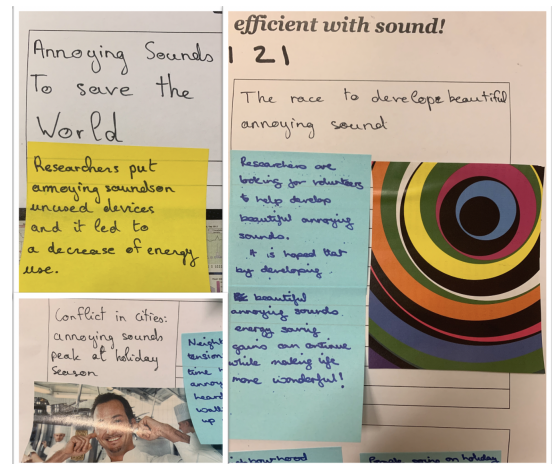 Annoying Sounds
To save the
World
Researchers put
annoying soundson
unused devices
and it led to
a decrease of energy
use.
Conflict in cities:
annoying sounds
peak at holiday
season
Neigh
tension
time
annoy
heard
wall
up
efficient with sound!
121
The race to develope beautiful
annoying sound
Researchers are
looking for volunteers
to help develop
beautiful annoying
sounds.
It is hoped that
by developing
beautiful
annoying sounds
energy saving
gains can continue
while making life
more wonderful!
ighbourhood
People going on holiday